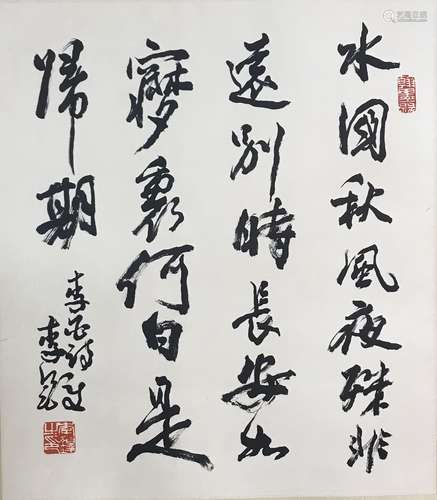 水國秋風夜殊非
遠別時長安如
夢裏何日是
歸期
李白詩
李鐸